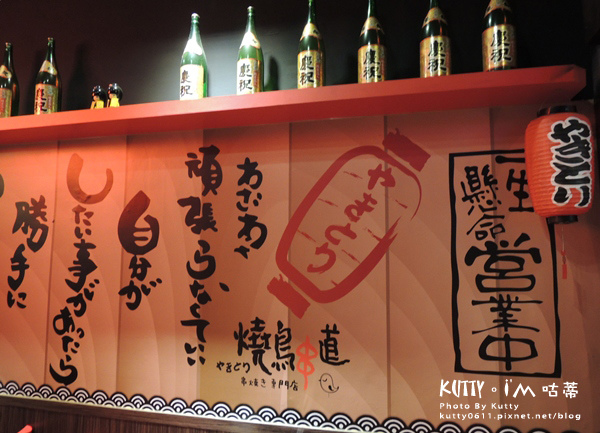 慶祝
慶祝
慶祝
慶祝
慶祝
慶祝
やきとり
一生
懸命
営業中
やきとり
頑張らなくていい
自分が
したい事があったら
勝手に
燒鳥串道
やきとり
串焼き専門店
KUTTY。i'm 咕蒂
Photo By Kutty
kutty0611.pixnet.net/blog